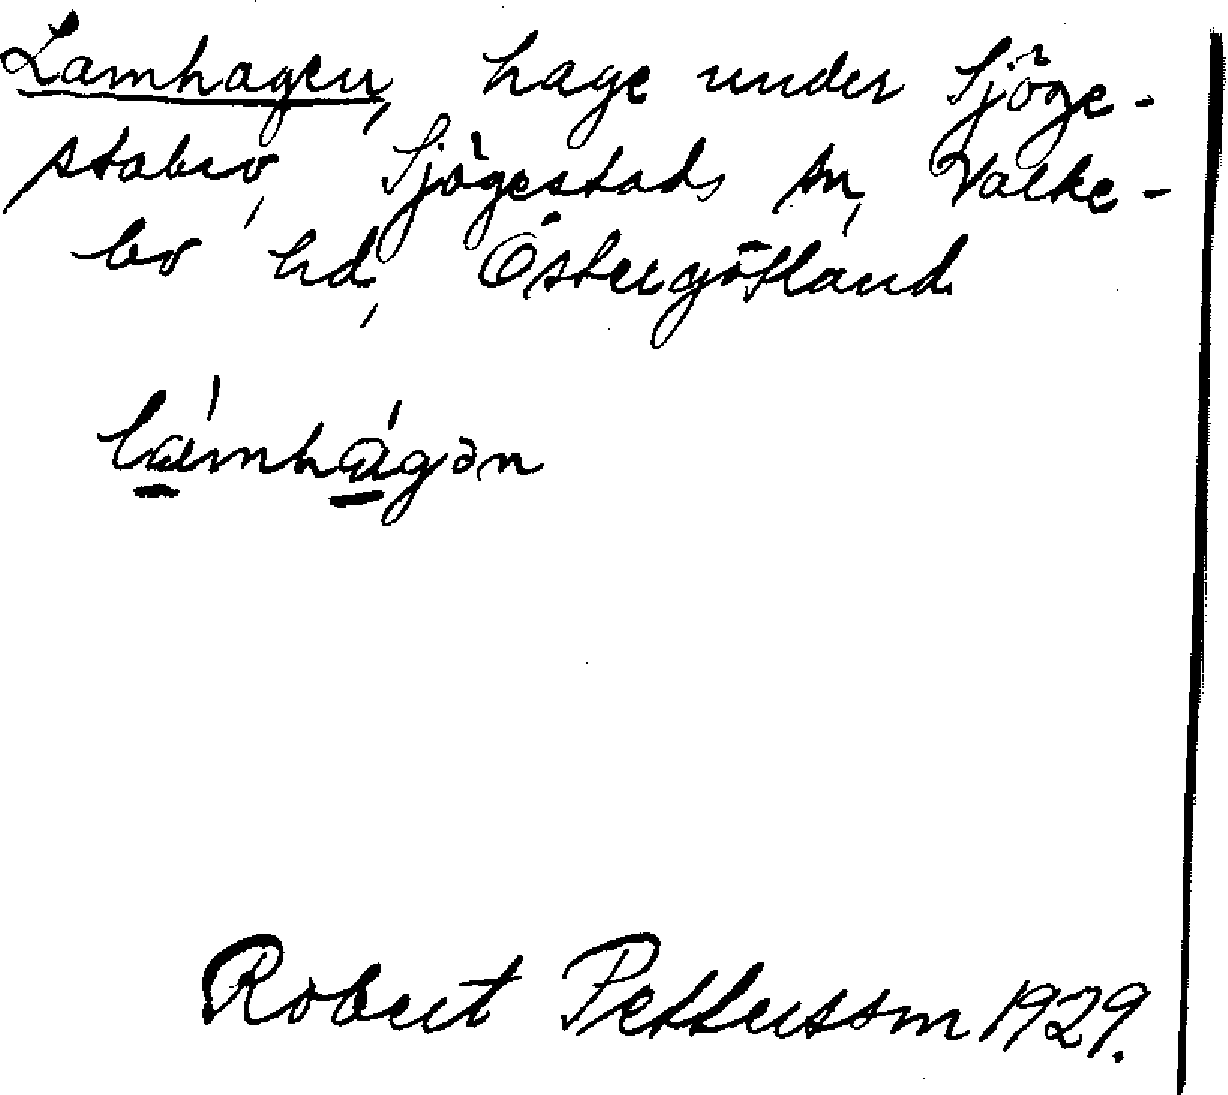 Lamhagen, hage under Sjöge-
stabro, Sjögestads sn, Valke-
bo hd, Östergötland.
lamhagən
Robert Pettersson 1929.